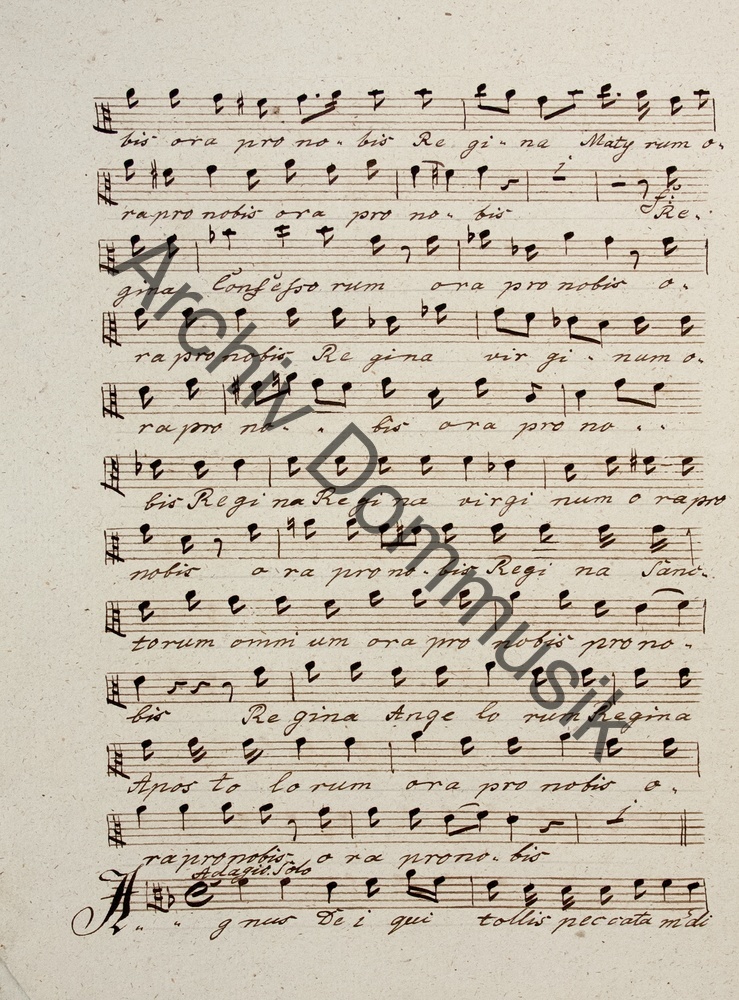 bis ora pro no - bis Re gi - na Maty rum o -
ra pro nobis ora pro no - bis Re -
gina Confesso rum ora pro nobis o -
ra pro nobis Re gina vir gi - num o -
ra pro no - - bis ora pro no - -
bis Regi na Regi na virgi num o ra pro
nobis o ra pro no - bis Regi na Sanc -
torum omni um ora pro nobis pro no -
bis Re gina Ange lo rum Regina
Apos to lo rum ora pro nobis o -
ra pro nobis o ra pro no - bis
Adagio Solo
A - - gnus De i qui tollis pec cata mdi
Archiv Dommusik